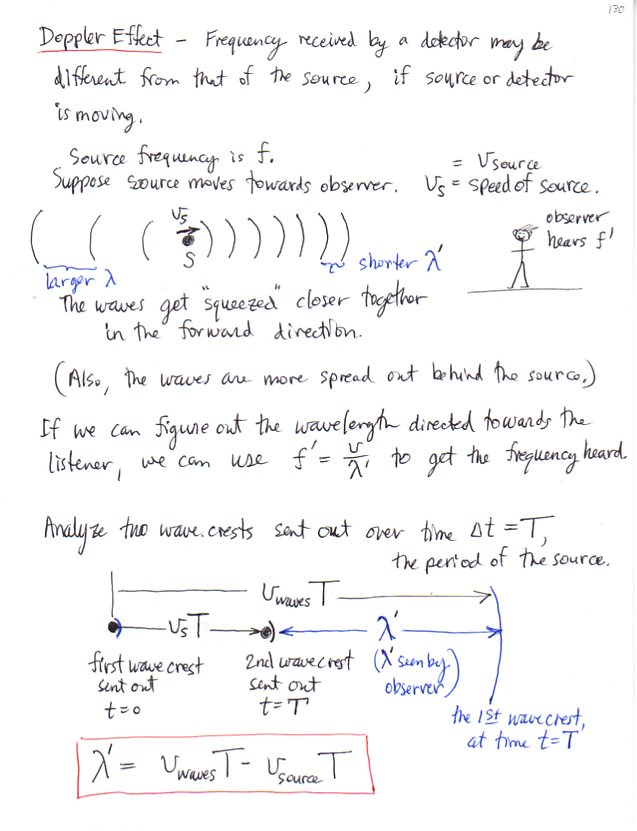 130
Doppler Effect – Frequency received by a detector may be
different from that of the source, if source or detector
is moving.
Source frequency is f.
= Vsource
Suppose source moves towards observer. Vs = speed of source.
Vs
S
observer
hears f'
larger λ
shorter λ'
The waves get "squeezed" closer together
in the forward direction.
(Also, the waves are more spread out behind the source.)
If we can figure out the wavelength directed towards the
listener, we can use f' = v/λ' to get the frequency heard.
Analyze two wave crests sent out over time Δt = T,
the period of the source.
Vwaves T
VsT
λ'
first wave crest
sent out
t=0
2nd wave crest
sent out
t=T
(λ' seen by
observer)
the 1st wave crest,
at time t=T
λ' = Vwaves T - Vsource T